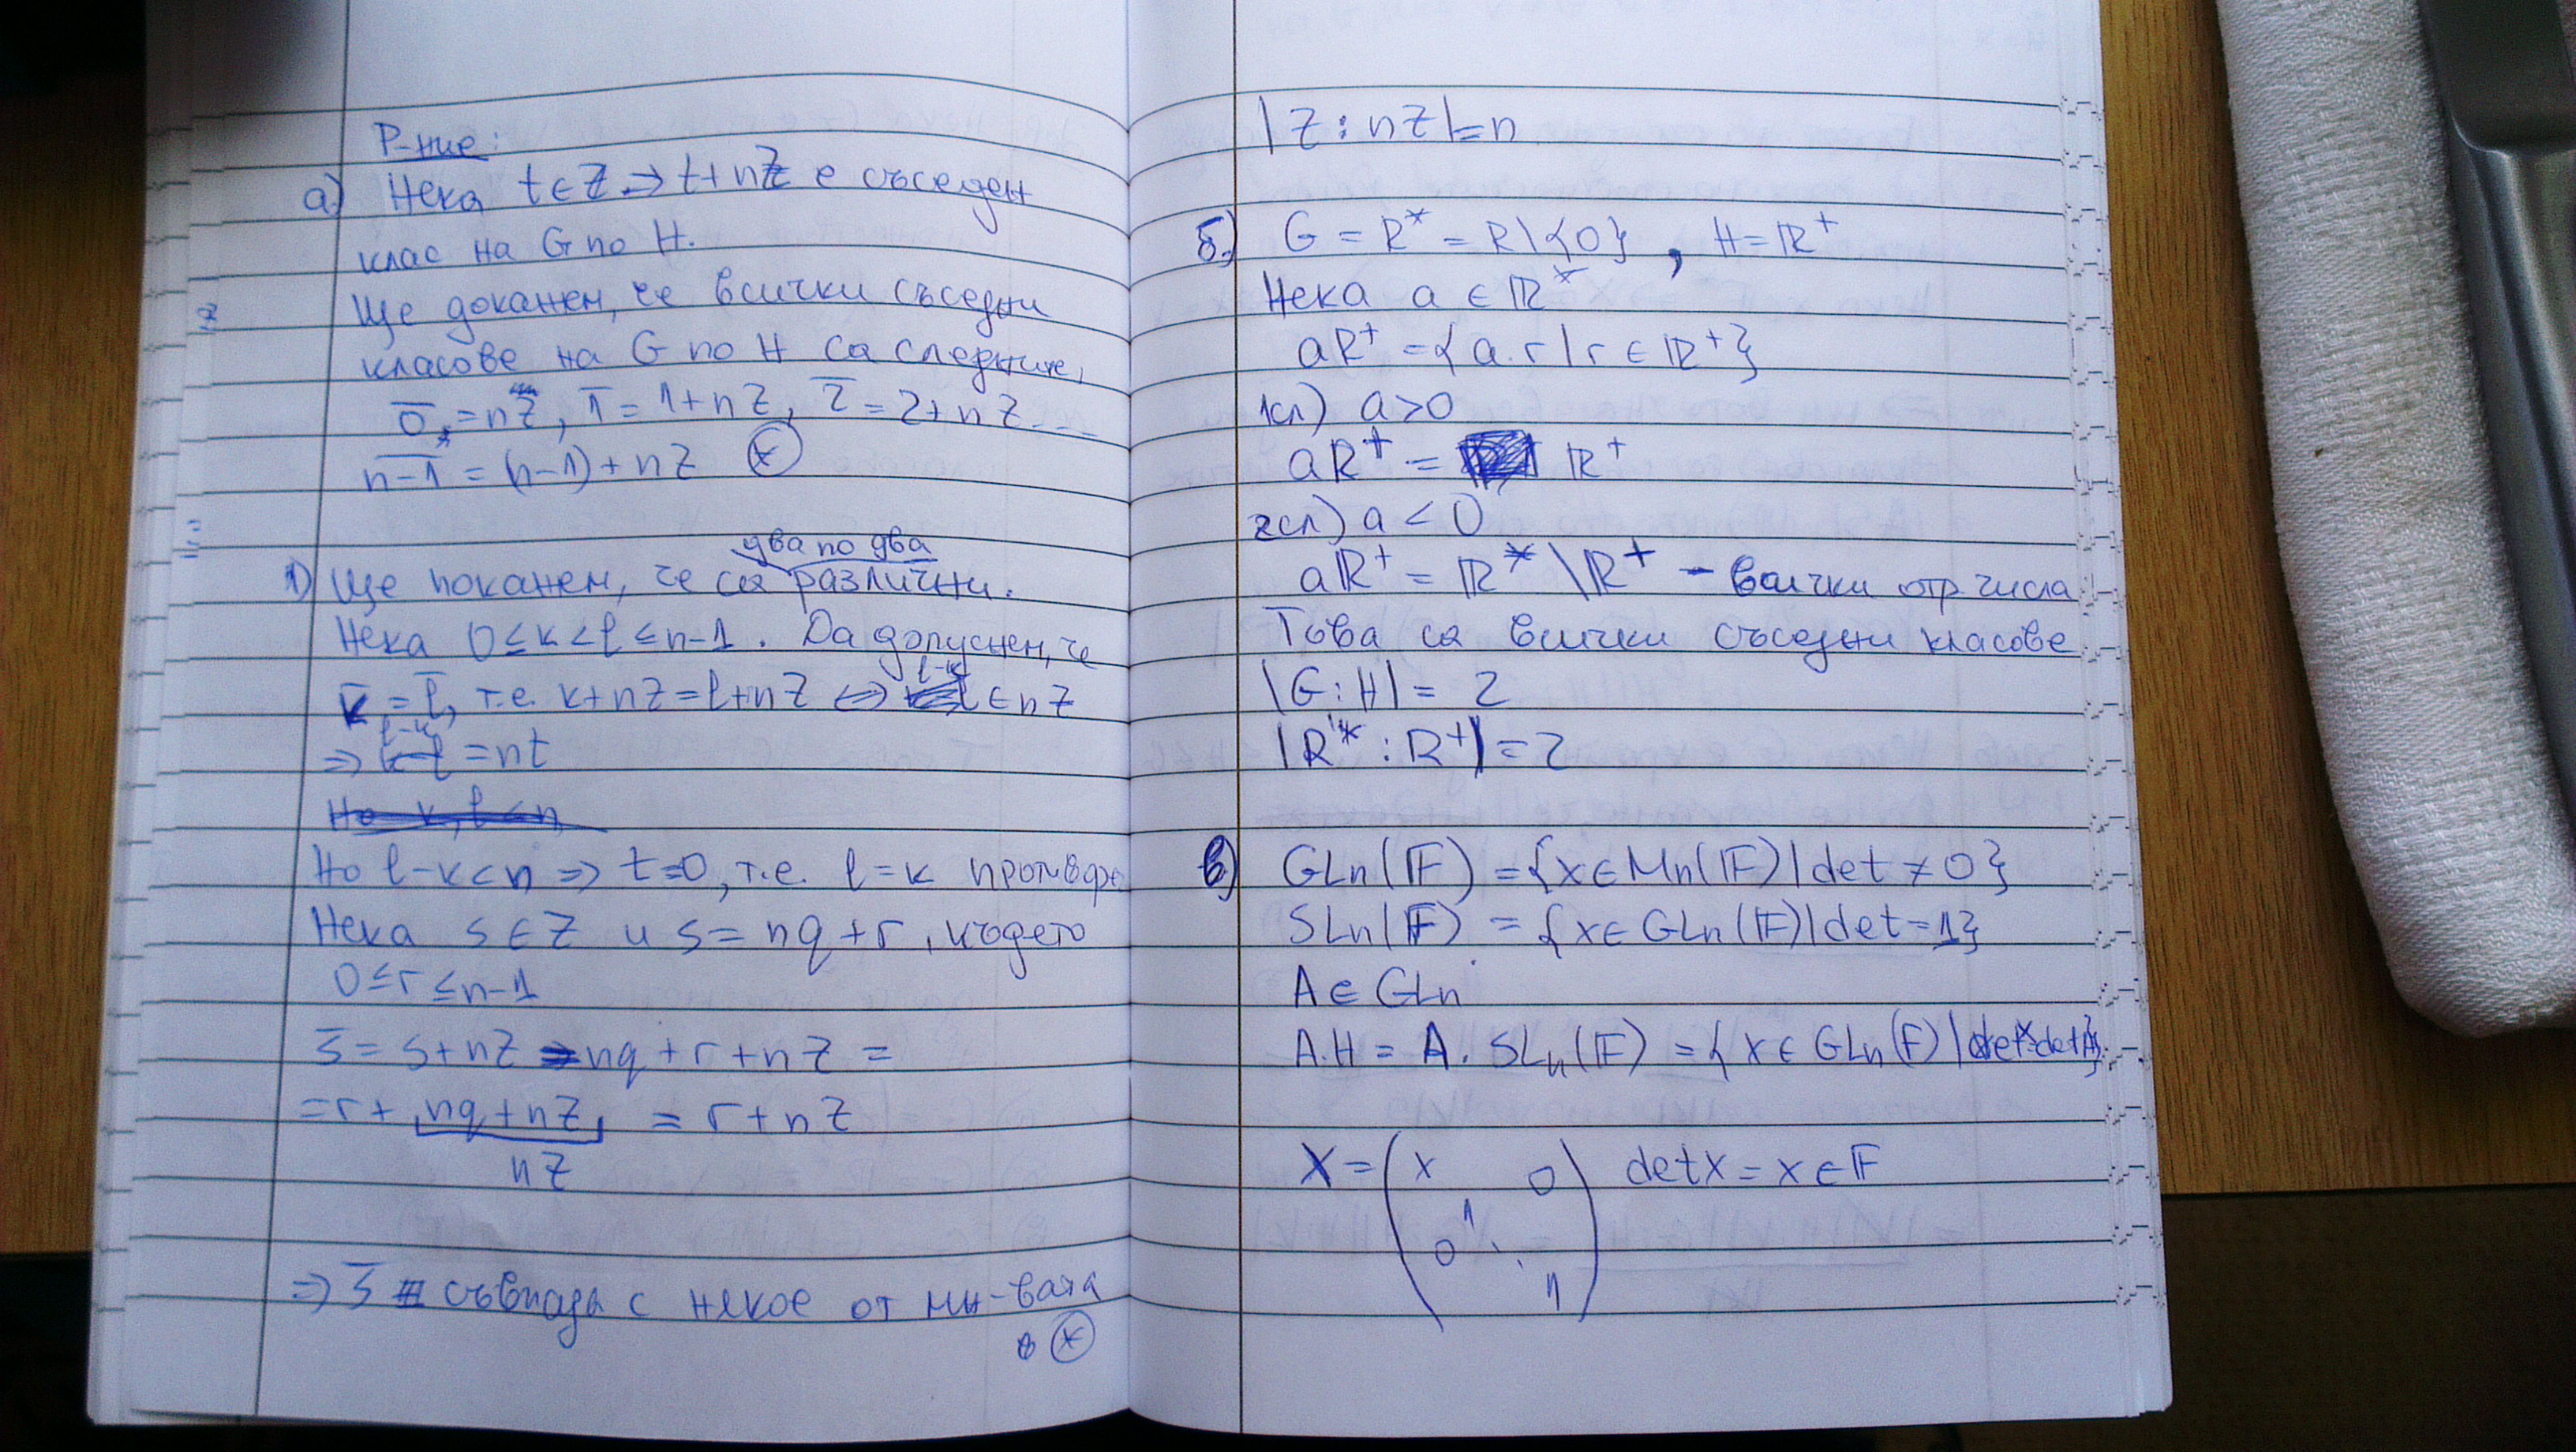 Р-ние:
а) Нека t ∈ Z ⇒ t + nZ е съседен
клас на G по H.
Ще докажем, че всички съседни
класове на G по H са следните,
0̅ = nZ, 1̅ = 1 + nZ, 2̅ = 2 + nZ ...
n-1 = (n-1) + nZ (*)
два по два
1) Ще покажем, че са различни.
Нека 0 ≤ k < l ≤ n-1. Да допуснем, че
k̅ = l̅, т.е. k + nZ = l + nZ ⇔ l-k ∈ nZ
⇒ l-k = nt
Но k, l < n
Но l-k < n ⇒ t = 0, т.е. l = k
Нека s ∈ Z и s = nq + r, където
0 ≤ r ≤ n-1
s̅ = s + nZ = nq + r + nZ =
= r + nq + nZ = r + nZ
nZ
⇒ s̅ съвпада с някое от мн-вата
в (*)
|Z : nZ| = n
б) G = R* = R \ {0}, H = ℝ⁺
Нека a ∈ ℝ*
aR⁺ = {a.r | r ∈ ℝ⁺}
1сл) a > 0
aR⁺ = ℝ⁺
2сл) a < 0
aℝ⁺ = ℝ* \ ℝ⁺ - всички отр числа
Това са всички съседни класове
|G : H| = 2
|R* : R⁺| = 2
в) GLn(𝔽) = {x ∈ Mn(𝔽) | det ≠ 0}
SLn(𝔽) = {x ∈ GLn(𝔽) | det = 1}
A ∈ GLn
A.H = A. SLn(𝔽) = {x ∈ GLn(F) | detx = det A}
X = ( x 0 ) detx = x ∈ 𝔽
1
0 ⋱
1